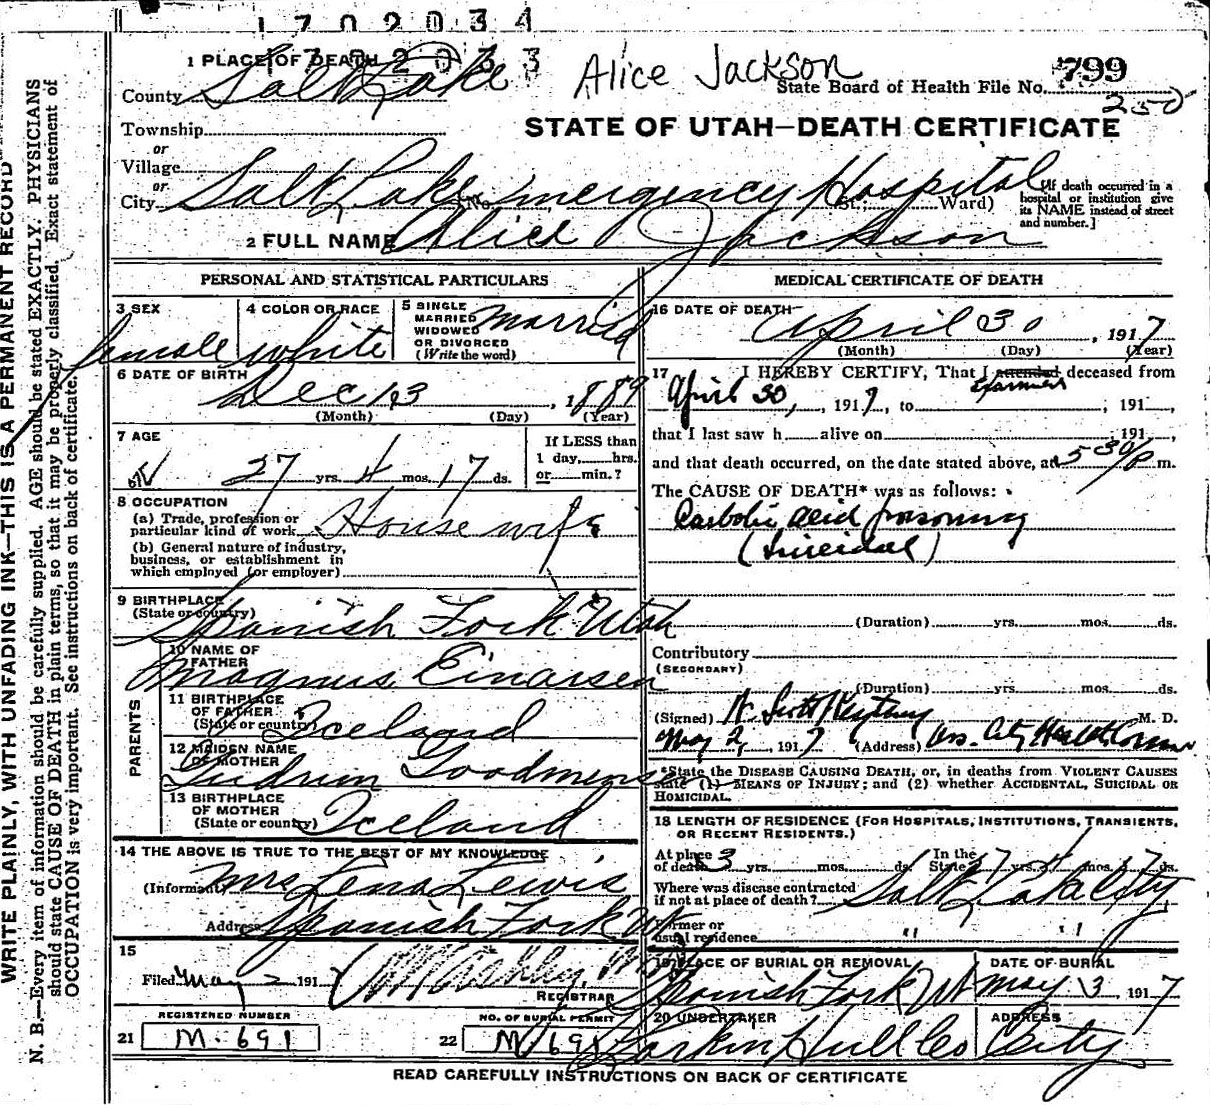 1702034
1702033
1 PLACE OF DEATH
Alice Jackson
County Salt Lake
State Board of Health File No. 799
250
Township
STATE OF UTAH—DEATH CERTIFICATE
or
Village
or
City Salt Lake (No. Emergency Hospital St.; Ward)
[If death occurred in a hospital or institution give its NAME instead of street and number.]
2 FULL NAME Alice Jackson
PERSONAL AND STATISTICAL PARTICULARS
3 SEX
female
4 COLOR OR RACE
white
5 SINGLE MARRIED WIDOWED OR DIVORCED (Write the word)
Married
6 DATE OF BIRTH
Dec 13, 1889
(Month) (Day) (Year)
7 AGE
27 yrs. 4 mos. 17 ds.
If LESS than 1 day, hrs. or min.?
8 OCCUPATION
(a) Trade, profession or particular kind of work Housewife
(b) General nature of industry, business, or establishment in which employed (or employer)
9 BIRTHPLACE (State or country)
Spanish Fork Utah
PARENTS
10 NAME OF FATHER
Magnus Einarsen
11 BIRTHPLACE OF FATHER (State or country)
Iceland
12 MAIDEN NAME OF MOTHER
Gudrun Goodmens
13 BIRTHPLACE OF MOTHER (State or country)
Iceland
14 THE ABOVE IS TRUE TO THE BEST OF MY KNOWLEDGE
(Informant) Mrs Lena Lewis
Address Spanish Fork Ut
15
Filed May 2 1917
REGISTRAR
REGISTERED NUMBER
21 M-691
NO. OF BURIAL PERMIT
22 M 691
MEDICAL CERTIFICATE OF DEATH
16 DATE OF DEATH
April 30, 1917
(Month) (Day) (Year)
17 I HEREBY CERTIFY, That I attended deceased from
examined
April 30, 1917, to , 191 ,
that I last saw h alive on 191 ,
and that death occurred, on the date stated above, at 5 30/P m.
The CAUSE OF DEATH* was as follows:
Carbolic acid poisoning
(Suicidal)
(Duration) yrs. mos. ds.
Contributory
(SECONDARY)
(Duration) yrs. mos. ds.
(Signed) M. D.
May 2, 1917 (Address) Ass. City Health Comm
*State the DISEASE CAUSING DEATH, or, in deaths from VIOLENT CAUSES
state (1) MEANS OF INJURY; and (2) whether ACCIDENTAL, SUICIDAL OR
HOMICIDAL.
18 LENGTH OF RESIDENCE (FOR HOSPITALS, INSTITUTIONS, TRANSIENTS,
OR RECENT RESIDENTS.)
At place of death 3 yrs. mos. ds. In the State 27 yrs. 4 mos. 17 ds.
Where was disease contracted
if not at place of death? Salt Lake City
Former or
usual residence " "
19 PLACE OF BURIAL OR REMOVAL
Spanish Fork Ut
DATE OF BURIAL
May 3 1917
20 UNDERTAKER
Larkin Hull Co
ADDRESS
City
READ CAREFULLY INSTRUCTIONS ON BACK OF CERTIFICATE
WRITE PLAINLY, WITH UNFADING INK—THIS IS A PERMANENT RECORD
N. B.—Every item of information should be carefully supplied. AGE should be stated EXACTLY. PHYSICIANS
should state CAUSE OF DEATH in plain terms, so that it may be properly classified. Exact statement of
OCCUPATION is very important. See instructions on back of certificate.